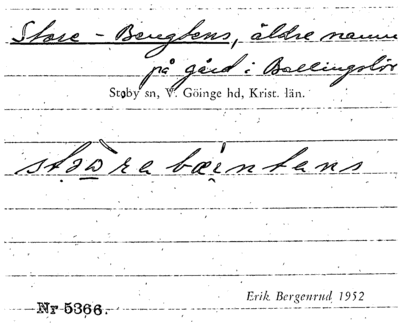 Store - Bengtens, äldre namn
på gård i Ballingslöv
Stoby sn, V. Göinge hd, Krist. län.
stǫ̀ra bǽ̨ntans
Erik Bergenrud 1952
Nr 5366.